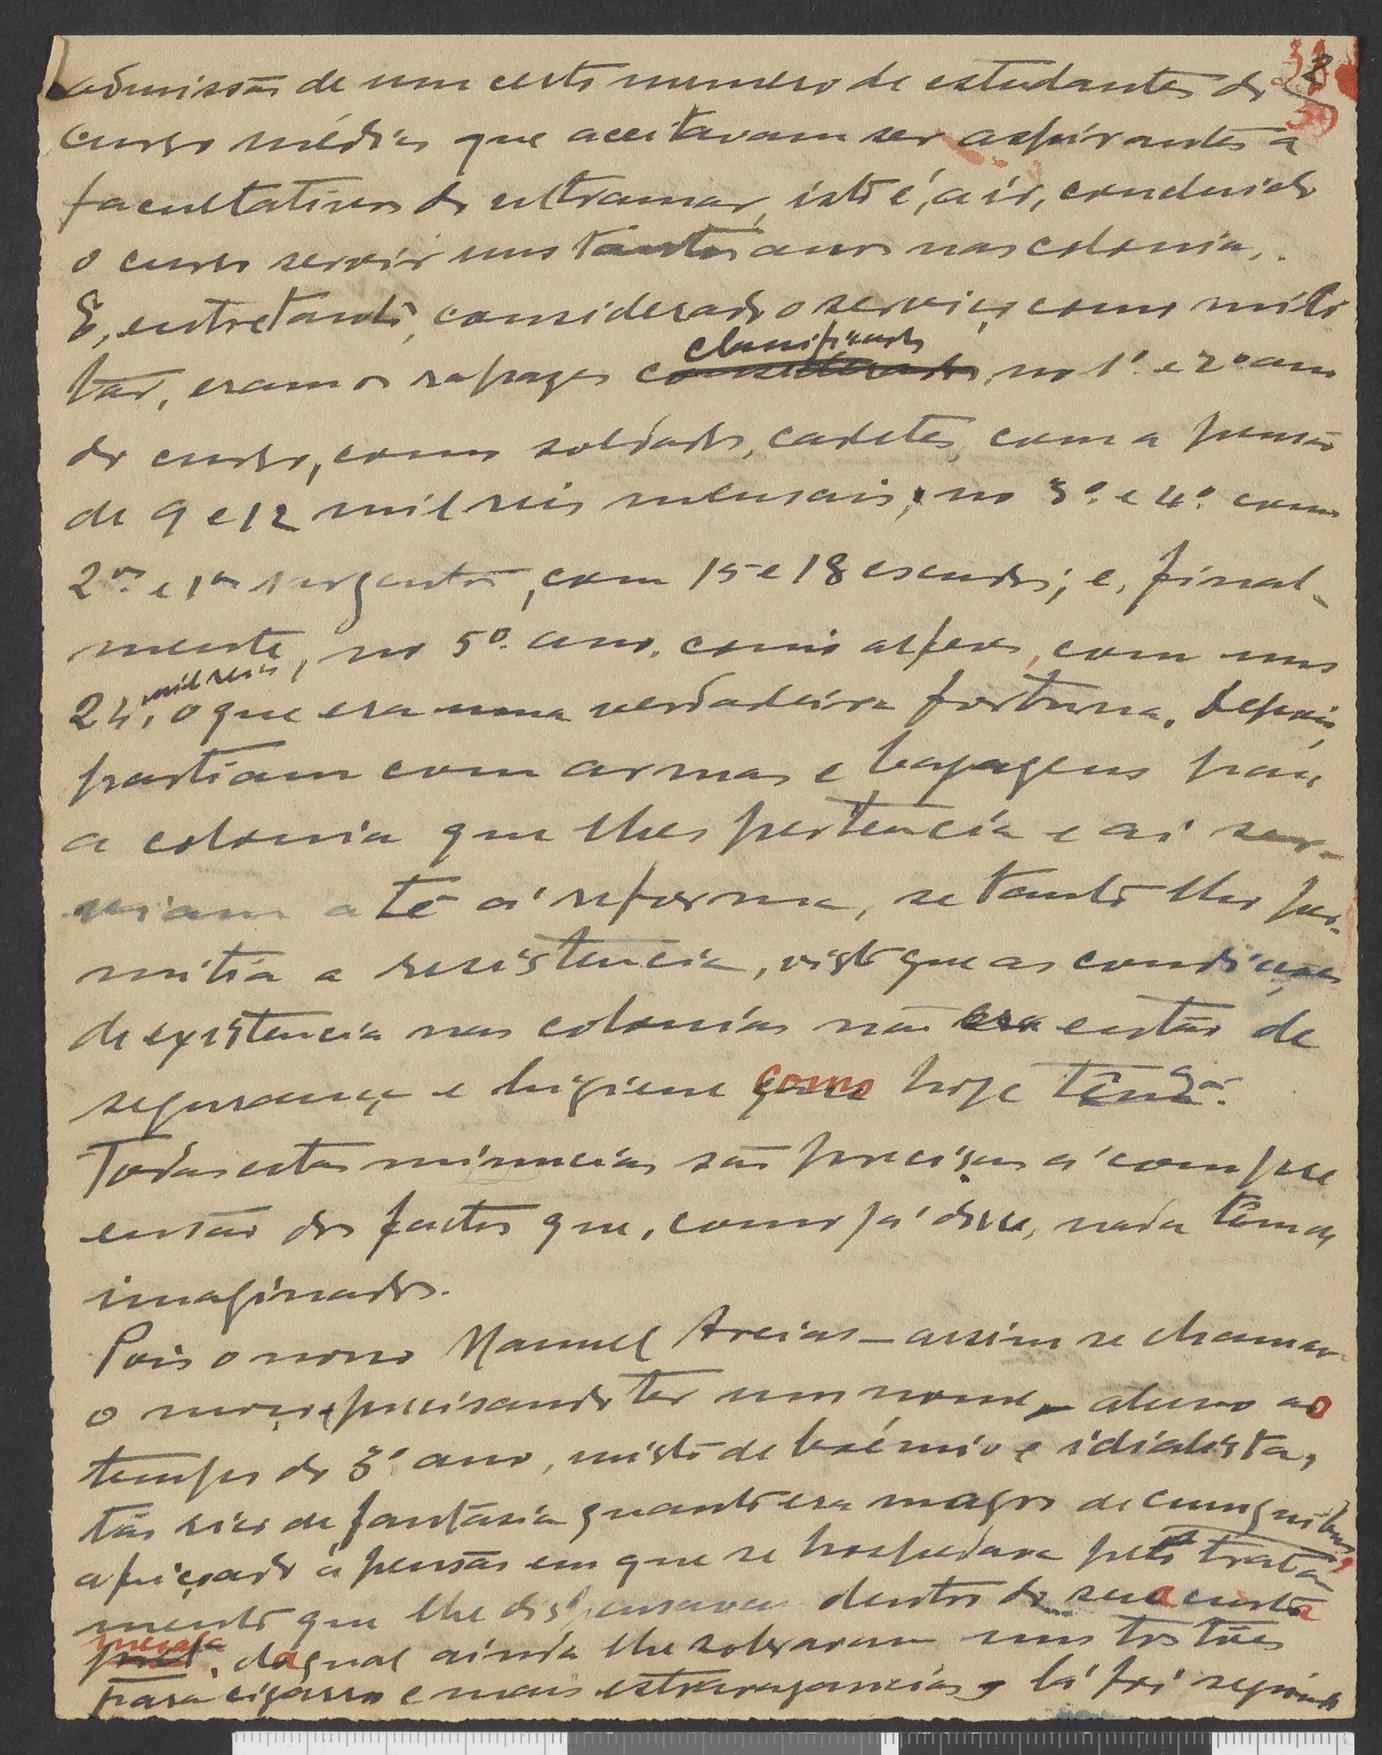 admissão de um certo numero de estudantes do 3
curso médico que aceitavam ser aspirantes a
facultativos do ultramar, isto é, a ir, concluido
o curso servir uns tantos anos nas colonia,.
E, entretanto, considerado o serviço como mili
tar, eram os rapazes classificados no 1º. e 2º ano
do curso, como soldados, cadetes, com a pensão
de 9 e 12 mil reis mensais; no 3º. e 4º. como
2os. e 1os sargentos, com 15 e 18 escudos; e, final-
mente, no 5º. ano, como alferes, com uns
24 mil reis, o que era uma verdadeira fortuna. Depois,
partiam com armas e bagagens para
a colonia que lhes pertencia e aí ser-
viam até á reforma, se tanto lhes per-
mitia a resistencia, visto que as condições
de existencia nas colonias não eram então de
segurança e higiene como hoje
Todas estas minucias são precisas á compre
ensão dos factos que, como já disse, nada têm de
imaginados.
Pois o nosso Manuel Areias - assim se chamava
o moço, precisando ter um nome, - aluno ao
tempo do 3º ano, misto de boémio e idialista,
tão rico de fantasia quanto era magro de cumquibus,
afeiçoado á pensão em que se hospedava pelo trata
mento que lhe dispensavam dentro da sua curta
mesada, da qual ainda lhe sobravam uns tostões
para cigarros e mais extravagancias, lá foi seguindo